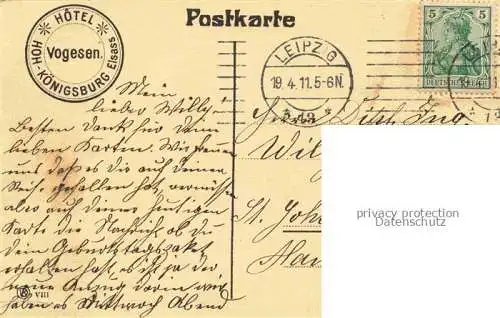 Postkarte
HÔTEL
HOH-KÖNIGSBURG Elsass
Vogesen.
LEIPZIG
19.4.11.5-6N.
5 5
DEUTSCHES REICH
Mein
lieber Willy!
Besten Dank für deine
lieben Karten. Wir freuen
uns daß es dir auf deiner
Reise gefallen hat, vermissen
aber auf deiner heutigen
Karte die Nachricht ob du
dein Geburtstagspaket
erhalten hast, es ist ja der
neue Anzug darin wir
haben es Mittwoch Abend
Herrn Ing.
Wil
St. Joh
privacy protection
Datenschutz
VIII